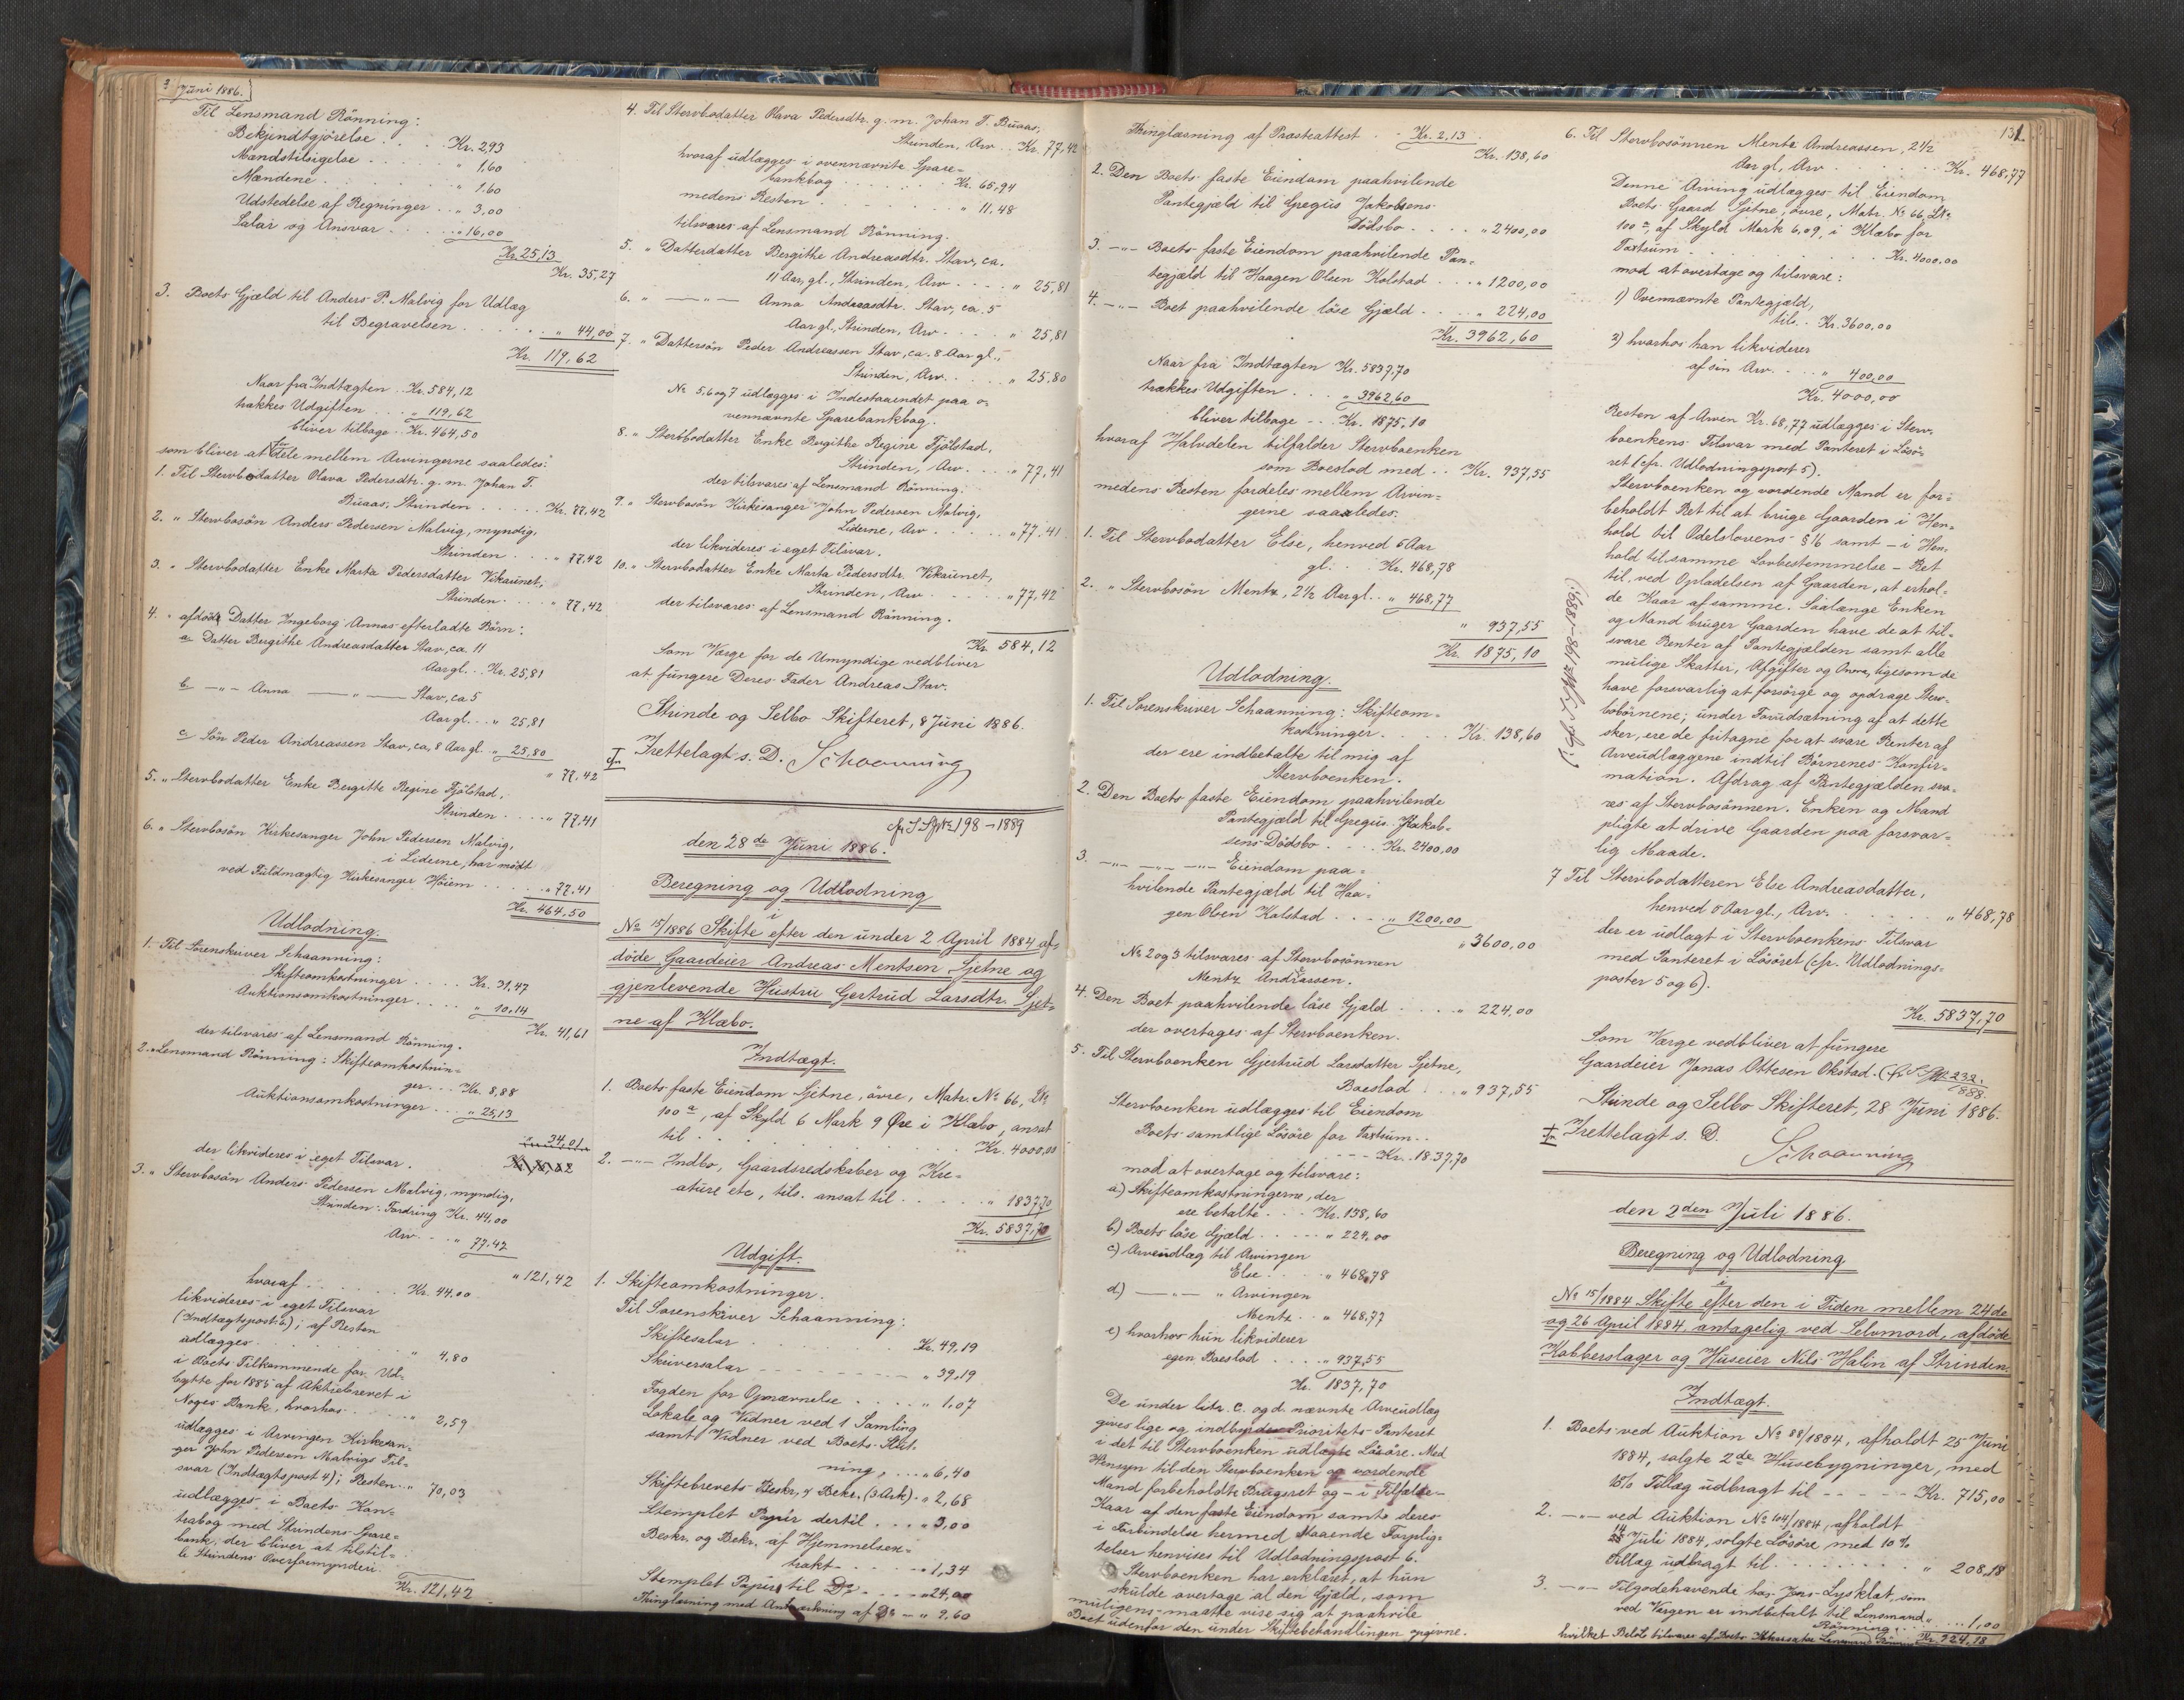 8 Juni 1886.
Til Lensmand Rönning:
Bekjendtgjörelse . . . Kr. 2,93
Mandstilsigelse . . . . " 1,60
Mændene . . . . . " 1.60
Udstedelse af Regninger . . " 3,00
Salær og Ansvar . . . . " 16,00
Kr. 25,13
Kr. 35,27
3. Boets Gjæld til Anders P. Malvig for Udlæg
til Begravelsen . . . . . . " 44,00
Kr. 119,62
Naar fra Indtægten . . Kr. 584,12
trækkes Udgiften . . . " 119,62
bliver tilbage . . Kr. 464,50
som bliver at dele mellem Arvingerne saaledes:
1. Til Stervbodatter Olava Pedersdtr. g. m. Johan T.
Buaas, Strinden . . . . . Kr. 77,42
2. " Stervbosön Anders Pedersen Malvig, myndig,
Strinden . . . " 77,42
3. " Stervbodatter Enke Marta Pedersdatter Vikaunet,
Strinden . . . . " 77,42
4. " afdöde Datter Ingeborg Annas efterladte Börn:
a. Datter Bergithe Andreasdatter Stav, ca. 11
Aar gl. . . Kr. 25,81
b. — " — Anna — " — Stav, ca 5
Aar gl. . . " 25,81
c. Sön Peder Andreassen Stav, ca. 8 Aar gl. . " 25,80
" 77,42
5. " Stervbodatter Enke Bergitte Regine Fjölstad,
Strinden . . . . " 77,41
6. " Stervbosön Kirkesanger John Pedersen Malvig,
i Liderne, har mödt
ved Fuldmægtig Kirkesanger Höiem . . . . . " 77.41
Kr. 464,50
Udlodning.
1. Til Sorenskriver Schaanning:
Skifteomkostninger . . . . Kr. 31,47
Auktionsomkostninger . . . . " 10,14
Kr. 41,61
der tilsvares af Lensmand Rönning.
2. " Lensmand Rönning: Skifteomkostnin-
ger . . . Kr. 8,88
Auktionsomkostninger . . . " 25,13
" 34,01
der likvideres i eget Tilsvar.
3. " Stervbosön Anders Pedersen Malvig, myndig,
Strinden: Fordring Kr. 44,00
Arv . . . " 77.42
" 121,42
hvoraf . . . . . . Kr. 44.00
likvideres i eget Tilsvar
(Indtægtspost 6); af Resten
udlægges . . . . . . . " 4,80
i Boets Tilkommende for Ud-
bytte for 1885 af Aktiebrevet i
Norges Bank, hvorhos . . . . " 2,59
udlægges i Arvingen Kirkesan-
ger John Pedersen Malvigs Til-
svar (Indtægtspost 4); Resten . . " 70,03
udlægges i Boets Kon-
trabog med Strindens Spare-
bank, der bliver at tilstil-
le Strindens Overformynderi.
Kr. 121,42
4. Til Stervbodatter Olava Pedersdtr. g. m. Johan T. Buaas,
Strinden, Arv . . Kr. 77,42
hvoraf udlægges i ovennævnte Spare-
bankbog . . . . . . Kr. 65,94
medens Resten . . . . . . " 11,48
tilsvares af Lensmand Rönning.
5. " Datterdatter Bergithe Andreasdtr. Stav, ca.
11 Aar gl., Strinden, Arv . . . . " 25,81
6. " — " — Anna Andreasdtr. Stav, ca. 5
Aar gl., Strinden, Arv . . . . " 25,81
7. " Dattersön Peder Andreassen Stav, ca. 8 Aar gl.,
Strinden, Arv . . . . " 25,80
No 5, 6 og 7 udlægges i Indestaaendet paa o-
vennævnte Sparebankbog.
8. " Stervbodatter Enke Bergithe Regine Fjölstad,
Strinden, Arv . . . . " 77,41
der tilsvares af Lensmand Rönning.
9. " Stervbosön Kirkesanger John Pedersen Malvig,
Liderne, Arv . . . . . " 77,41
der likvideres i eget Tilsvar.
10. " Stervbodatter Enke Marta Pedersdtr. Vikaunet,
Strinden, Arv . . . . . " 77,42
der tilsvares af Lensmand Rönning.
Kr. 584,12
Som Værge for de Umyndige vedbliver
at fungere Deres Fader Andreas Stav.
Strinde og Selbo Skifteret, 8 Juni 1886.
Irettelagt s. D. Schaanning
cfr. S. Sk. Pr. 198 - 1889
den 28de Juni 1886.
Beregning og Udlodning
i
No 15/1886 Skifte efter den under 2 April 1884 af-
döde Gaardeier Andreas Mentsen Sjetne og
gjenlevende Hustru Gertrud Larsdtr. Sjet-
ne af Klæbo.
Indtægt.
1. Boets faste Eiendom Sjetne, övre, Matr. No 66, LNo
100a, af Skyld 6 Mark 9 Öre i Klæbo, ansat
til . . . . . . . . . Kr. 4000,00
2. — " — Indbo, Gaardsredskaber og Kre-
ature etc, tils. ansat til . . . . . " 1837,70
Kr. 5837,70
Udgift.
1. Skifteomkostninger.
Til Sorenskriver Schaanning:
Skiftesalær . . . . . . . Kr. 49,19
Skriversalær . . . . . . . " 39,19
Fogden for Opnævnelse . . . . . " 1,07
Lokale og Vidner ved 1 Samling
samt Vidner ved Boets Slut-
ning, . . . . " 6,40
Skiftebrevets Beskr. & Bekr. (3 Ark) . . " 2,68
Stemplet Papir dertil . . . . " 3,00
Beskr. og Bekr. af Hjemmelsex-
trakt . . . . . " 1,34
Stemplet Papir til Do . . . . " 24,00
Thinglæsning med Anmærkning af Do — " 9,60
Thinglæsning af Præsteattest . . . Kr. 2,13
Kr. 138,60
2. Den Boets faste Eiendom paahvilende
Pantegjæld til Gregus Jakobsens
Dödsbo . . . . " 2400,00
3. — " — Boets faste Eiendom paahvilende Pan-
tegjæld til Haagen Olsen Kolstad . . . " 1200,00
4. — " — Boet paahvilende löse Gjæld . . . . " 224,00
Kr. 3962,60
Naar fra Indtægten Kr. 5837,70
trækkes Udgiften . . . " 3962,60
bliver tilbage . . . Kr. 1875,10
hvoraf Halvdelen tilfalder Stervboenken
som Boeslod med . . Kr. 937,55
medens Resten fordeles mellem Arvin-
gerne saaledes:
1. Til Stervbodatter Else, henved 5 Aar
gl. . . Kr. 468,78
2. " Stervbosön Mentz, 2½ Aar gl. . " 468,77
" 937,55
Kr. 1875,10
Udlodning.
1. Til Sorenskriver Schaanning: Skifteom-
kostninger . . . . . Kr. 138,60
der ere indbetalte til mig af
Stervboenken.
2. Den Boets faste Eiendom paahvilende
Pantegjæld til Gregus Jakob-
sens Dödsbo . . . Kr. 2400,00
3. — " — — " — — " — Eiendom paa-
hvilende Pantegjæld til Haa-
gen Olsen Kolstad . . . . " 1200,00
" 3600,00
No 2 og 3 tilsvares af Stervbosönnen
Mentz Andreassen.
4. Den Boet paahvilende löse Gjæld . . . . " 224,00
der overtages af Stervboenken.
5. Til Stervboenken Gjertrud Larsdatter Sjetne,
Boeslod . . . " 937,55
Stervboenken udlægges til Eiendom
Boets samtlige Lösöre for Taxtsum . .
. . . Kr. 1837,70
mod at overtage og tilsvare:
a) Skifteomkostningerne, der
ere betalte . . . Kr. 138,60
b) Boets löse Gjæld . . . . " 224,00
c) Arveudlæg til Arvingen
Else . . . . . " 468,78
d) — " — " Arvingen
Mentz . . " 468,77
e) hvorhos hun likviderer
egen Boeslod . . . . " 937,55
Kr. 1837,70
De under litr. c. og d. nævnte Arveudlæg
gives lige og indbyrdes Prioritets Panteret
i det til Stervboenken udlagte Lösöre. Med
Hensyn til den Stervboenken og vordende
Mand forbeholdte Brugsret og — i Tilfælde —
Kaar af den faste Eiendom samt deres
i Forbindelse hermed staaende Forplig-
telser henvises til Udlodningspost 6.
Stervboenken har erklæret, at hun
skulde overtage al den Gjæld, som
muligens maatte vise sig at paahvile
Boet udenfor den under Skiftebehandlingen opgivne.
131.
6. Til Stervbosönnen Mentz Andreassen, 2½
Aar gl, Arv . . . . . . Kr. 468,77
Denne Arving udlægges til Eiendom
Boets Gaard Sjetne, övre, Matr. No 66, LNo
100a, af Skyld Mark 6,09, i Klæbo for
Taxtsum . . . . . . . Kr. 4000,00
mod at overtage og tilsvare:
1) Ovennævnte Pantegjæld,
tils. . Kr. 3600,00
2) hvorhos han likviderer
af sin Arv . . . . " 400,00
Kr. 4000,00
Resten af Arven Kr. 68,77 udlægges i Sterv-
boenkens Tilsvar med Panteret i Lösö-
ret (cfr. Udlodningspost 5).
Stervboenken og vordende Mand er for-
beholdt Ret til at bruge Gaarden i Hen-
hold til Odelslovens § 16 samt — i Hen-
hold til samme Lovbestemmelse — Ret
til, ved Opladelsen af Gaarden, at erhol-
de Kaar af samme. Saalænge Enken
og Mand bruger Gaarden have de at til-
svare Renter af Pantegjælden samt alle
mulige Skatter, Afgifter og Onera, ligesom de
have forsvarlig at forsörge og opdrage Sterv-
bobörnene; under Forudsætning af at dette
sker, ere de fritagne for at svare Renter af
Arveudlæggene indtil Börnenes Konfir-
mation. Afdrag af Pantegjælden sva-
res af Stervbosönnen. Enken og Mand
pligte at drive Gaarden paa forsvar-
lig Maade.
7 Til Stervbodatteren Else Andreasdatter,
henved 5 Aar gl., Arv . . . . . . . " 468,78
der er udlagt i Stervboenkens Tilsvar
med Panteret i Lösöret (cfr. Udlodnings-
poster 5 og 6).
Kr. 5837,70
Som Værge vedbliver at fungere
Gaardeier Jonas Ottesen Okstad.
Strinde og Selbo Skifteret, 28 Juni 1886.
Irettelagt s. D.
Schaanning
den 2den Juli 1886.
Beregning og Udlodning
i
No 15/1884 Skifte efter den i Tiden mellem 24de
og 26 April 1884, antagelig ved Selvmord, afdöde
Kobberslager og Huseier Nils Halin af Strinden.
Indtægt.
1. Boets ved Auktion No 88/1884, afholdt 25 Juni
1884, solgte 2de Husebygninger, med
10% Tillæg udbragt til - - - - - Kr. 715,00
2. — " — ved Auktion No 104/1884, afholdt
14 Juli 1884, solgte Lösöre med 10%
Tillæg udbragt til . . . . . . . " 208,18
3. — " — Tilgodehavende hos Jens Lysklæt, som
ved Værgen er indbetalt til Lensmand
Rönning . . . . 1,00
hvilket Belöb tilsvares af Boets Lensmand Rönning Kr. 924,18